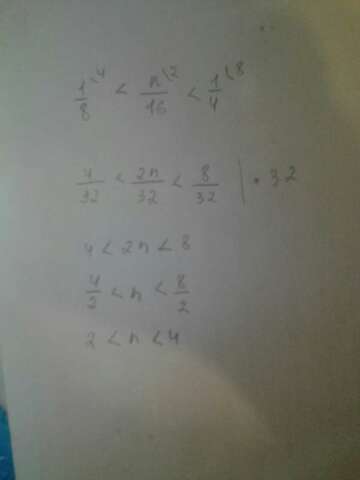 1/8 \4 < n/16 \2 < 1/4 \8
4/32 < 2n/32 < 8/32 | • 32
4 < 2n < 8
4/2 < n < 8/2
2 < n < 4